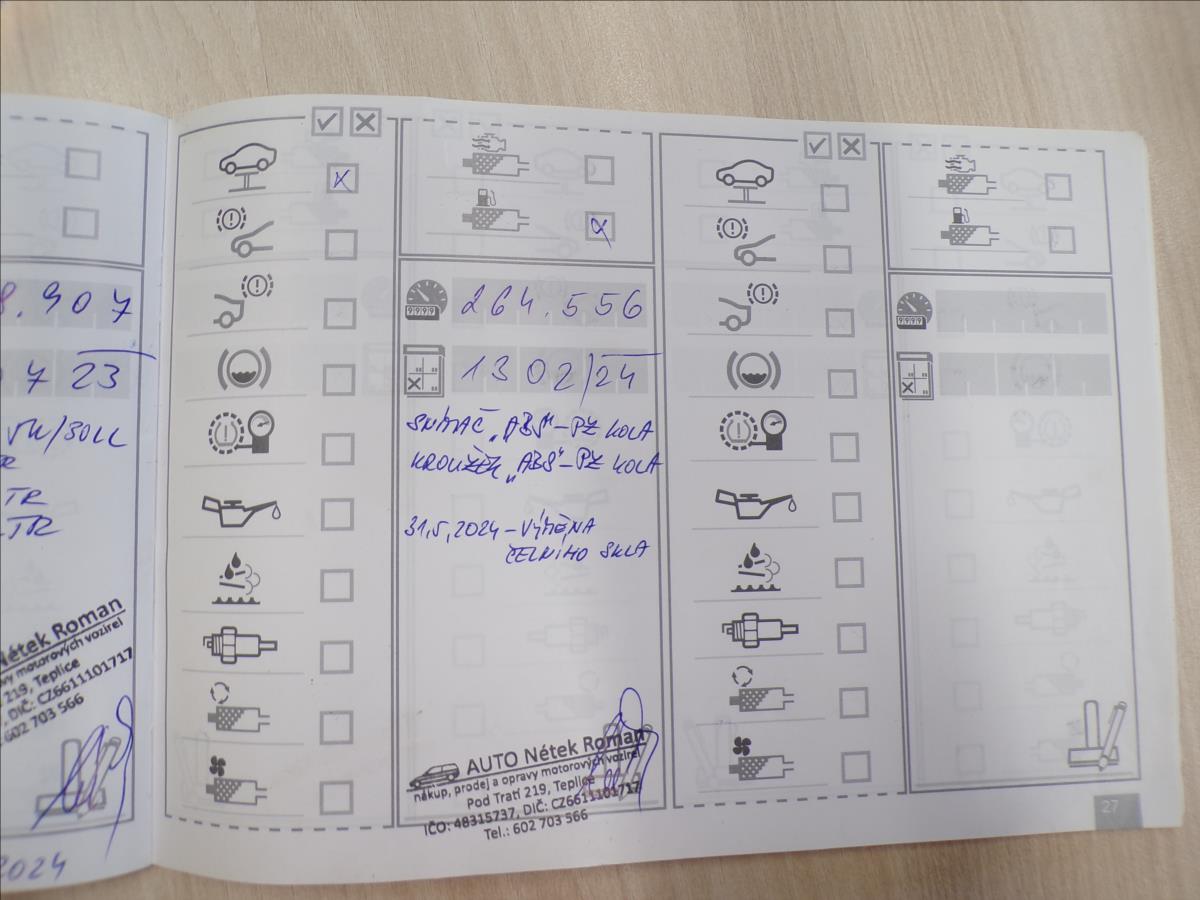 .907
7 23
TR
TR
Nétek Roman
vy motorových vozirel
219, Teplice
, DIČ: CZ6611101717
602 703 566
2024
264.556
13 02/24
SNÍMAČ „ABS" - PZ KOLA
KROUŽEK „ABS" - PZ KOLA
31,5,2024 - VÝMĚNA
ČELNÍHO SKLA
AUTO Nétek Roman
nákup, prodej a opravy motorových vozirel
Pod Tratí 219, Teplice
IČO: 48315737, DIČ: CZ6611101717
Tel.: 602 703 566
27